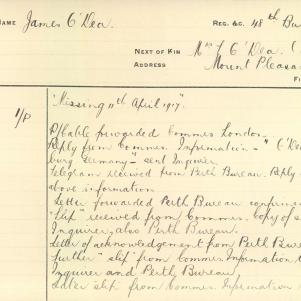 NAME James O'Dea. REG. &C. 48th Ba
NEXT OF KIN Mrs L O'Dea. (
ADDRESS Mount Pleasa
F
"Missing 11th April 1917".
1/P
P/Cable forwarded Commrs London.
Reply from Commrs. Information - " (O'De
burg Germany" - sent Inquirer.
Telegram received from Perth Bureau. Reply -
above information.
Letter forwarded Perth Bureau confirm
"Slip" received from Commrs. Copy of s
Inquirer, also Perth Bureau.
Letter of acknowledgement from Perth Bure
Further "slip" from Commrs Information t
Inquirer and Perth Bureau.
Later slip from Commrs. Information